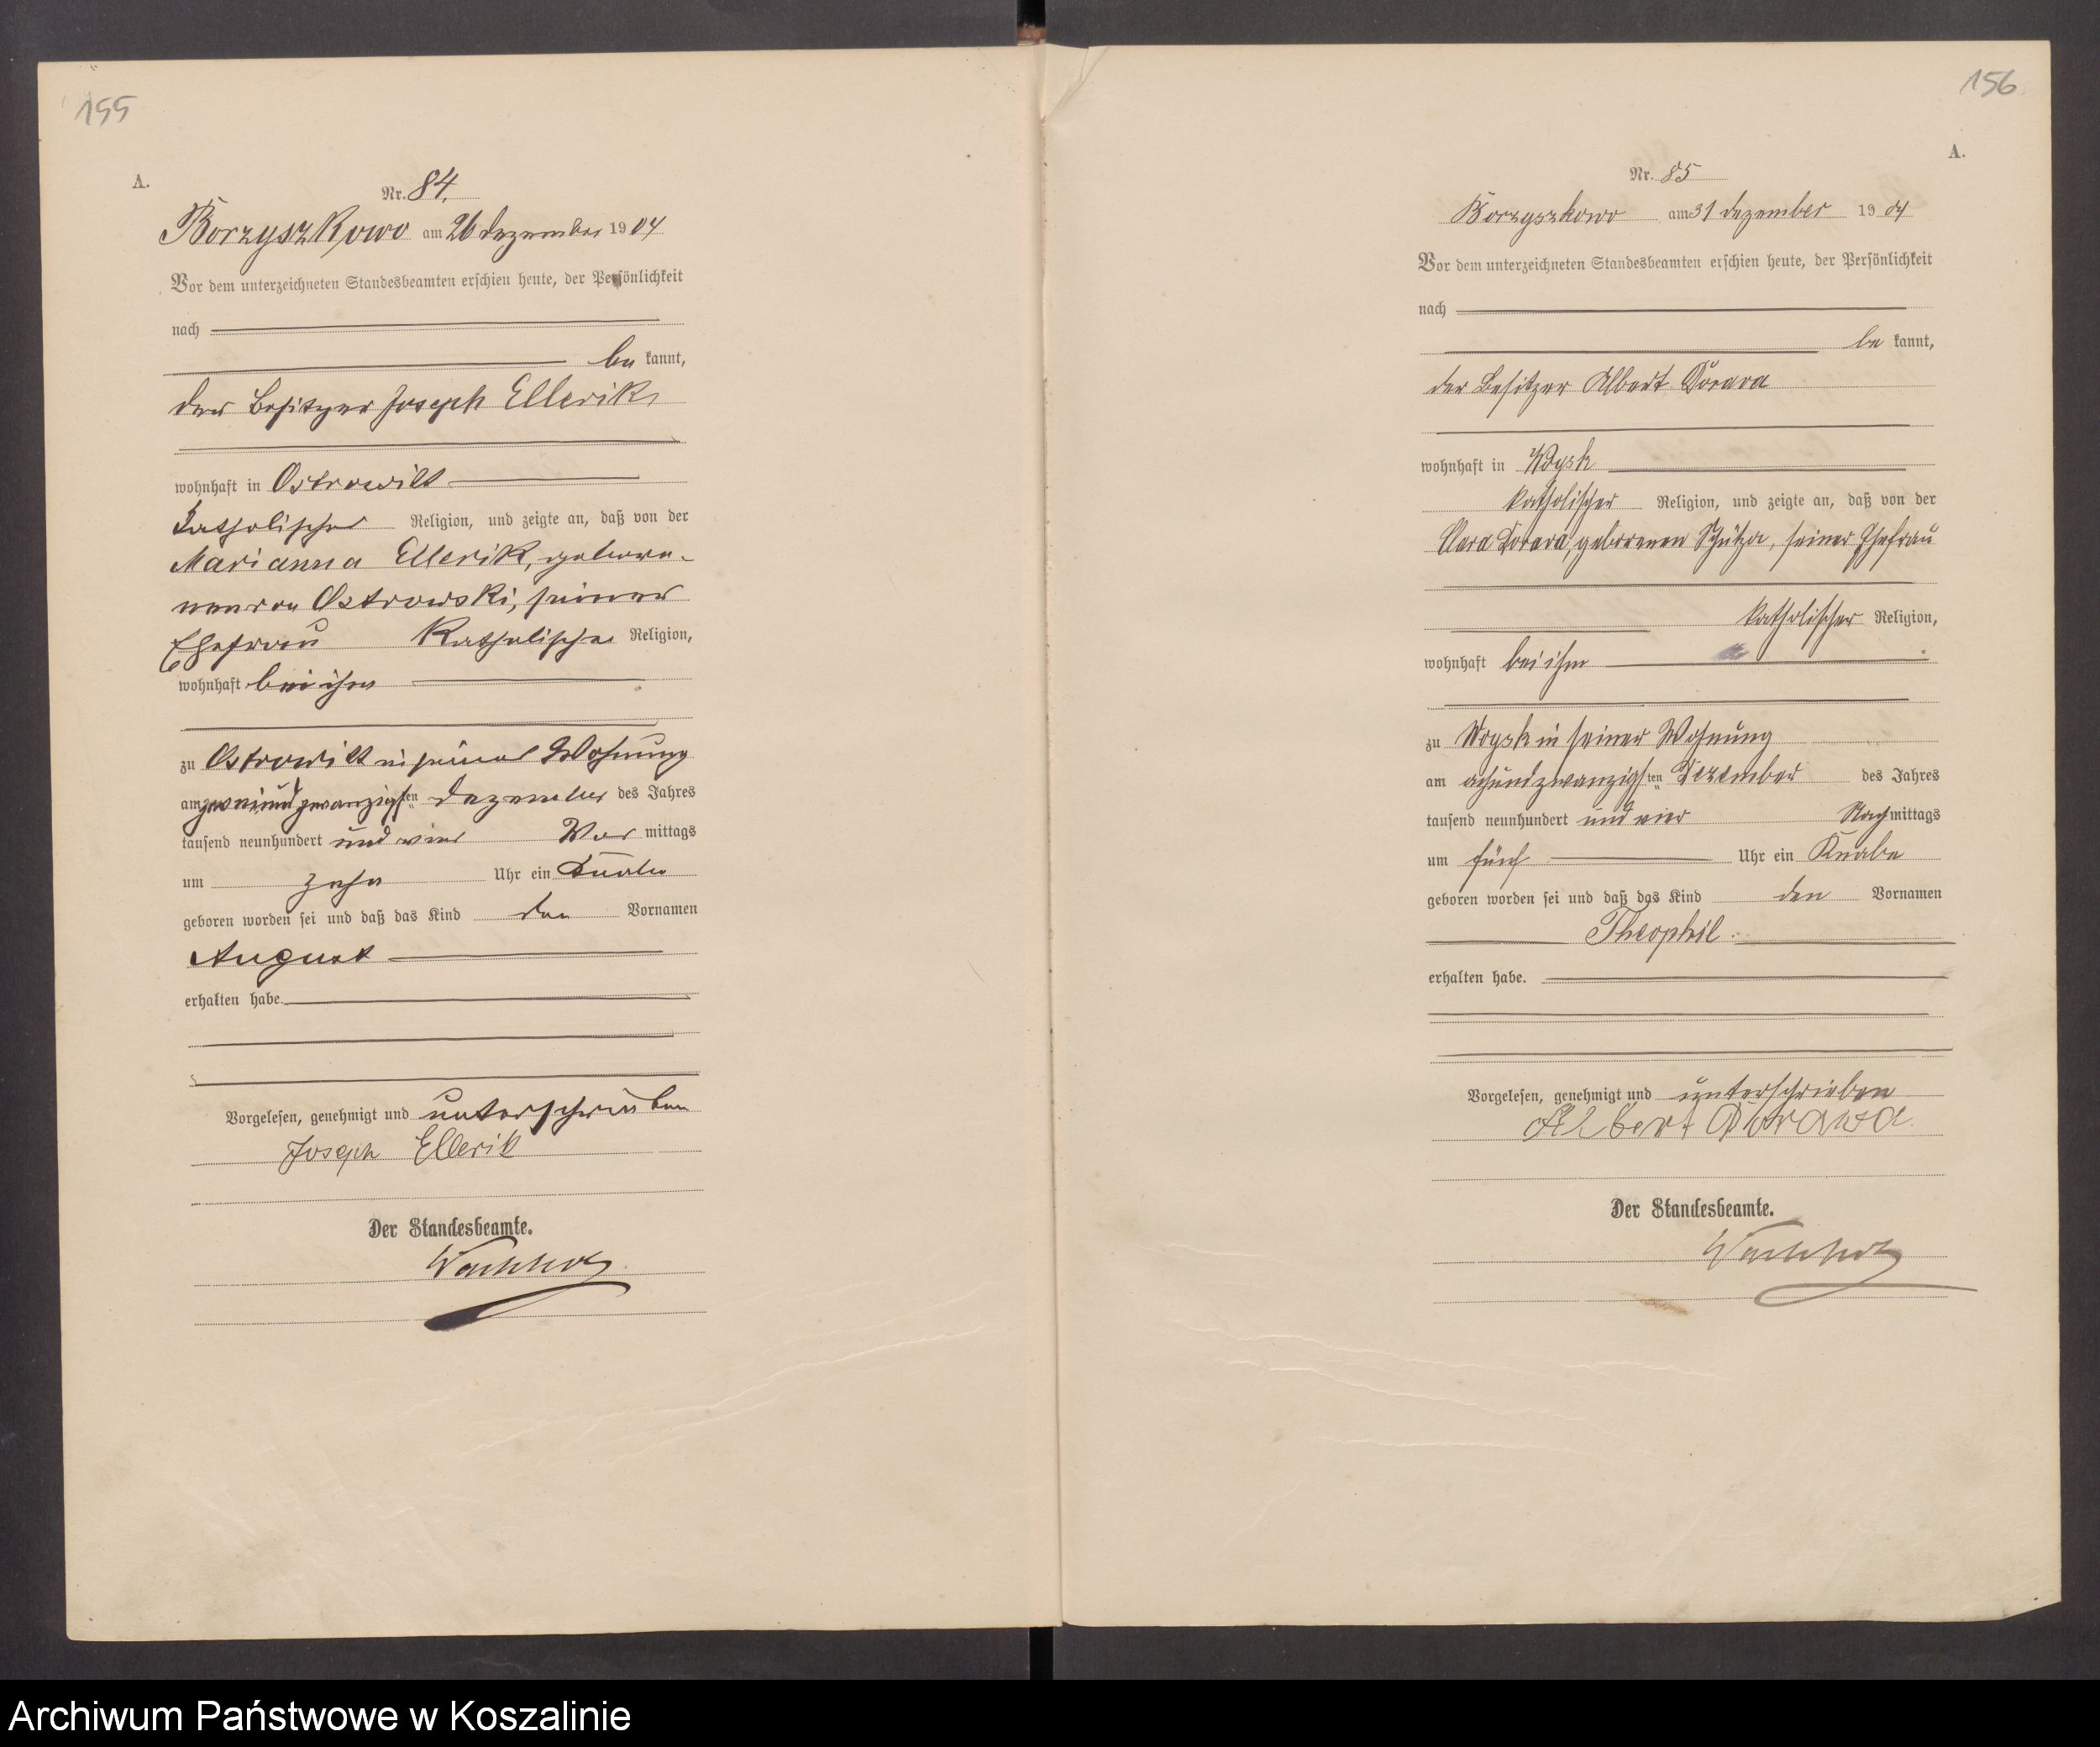 155
A.
Nr. 84.
Borzyszkowo am 26 Dezember 1904
Vor dem unterzeichneten Standesbeamten erschien heute, der Persönlichkeit
nach
be kannt,
der Besitzer Joseph Ellerik
wohnhaft in Ostrowitt
katholischer Religion, und zeigte an, daß von der
Marianna Ellerik, gebore-
nen von Ostrowski, seiner
Ehefrau katholischer Religion,
wohnhaft bei ihm
zu Ostrowitt in seiner Wohnung
am zweiundzwanzigsten Dezember des Jahres
tausend neunhundert und vier Vor mittags
um zehn Uhr ein Knabe
geboren worden sei und daß das Kind den Vornamen
August
erhalten habe.
Vorgelesen, genehmigt und unterschrieben
Joseph Ellerik
Der Standesbeamte.
156
A.
Nr. 85
Borzyszkowo am 31 Dezember 1904
Vor dem unterzeichneten Standesbeamten erschien heute, der Persönlichkeit
nach
be kannt,
der Besitzer Albert
wohnhaft in
katholischer Religion, und zeigte an, daß von der
Clara geborenen Schütza, seiner Ehefrau
katholischer Religion,
wohnhaft bei ihm
zu in seiner Wohnung
am achtundzwanzigsten Dezember des Jahres
tausend neunhundert und vier Nachmittags
um fünf Uhr ein Knabe
geboren worden sei und daß das Kind den Vornamen
Theophil
erhalten habe.
Vorgelesen, genehmigt und unterschrieben
Albert
Der Standesbeamte.
Archiwum Państwowe w Koszalinie